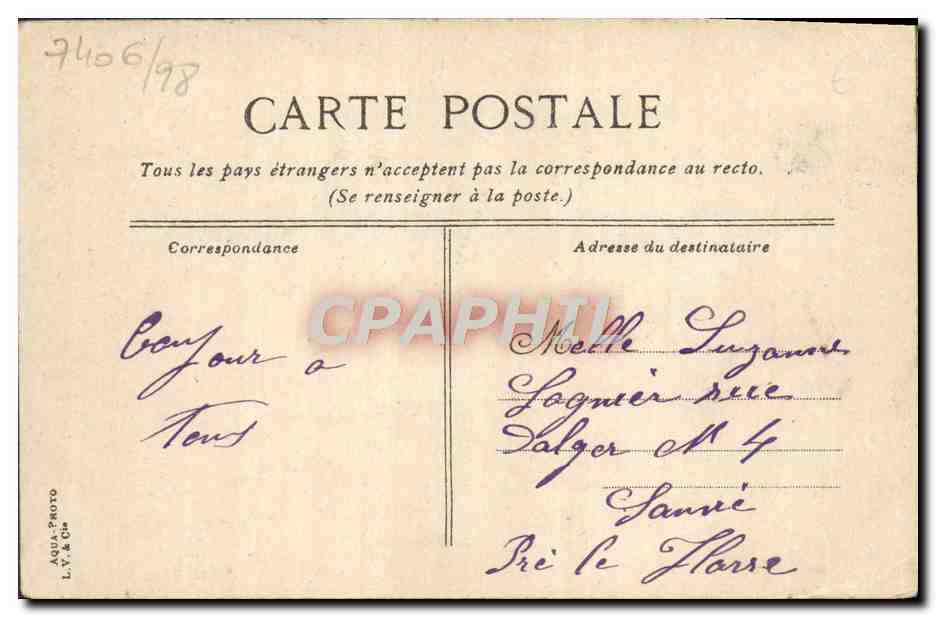 7406/98
CARTE POSTALE
Tous les pays étrangers n'acceptent pas la correspondance au recto.
(Se renseigner à la poste.)
Correspondance
Adresse du destinataire
CPAPHIL
Bon
jour a
Tous
Melle Suzanne
Lagnier rue
Dalger N 4
Sanvic
Pré le Havre
AQUA-PHOTO
L.V. & Cie